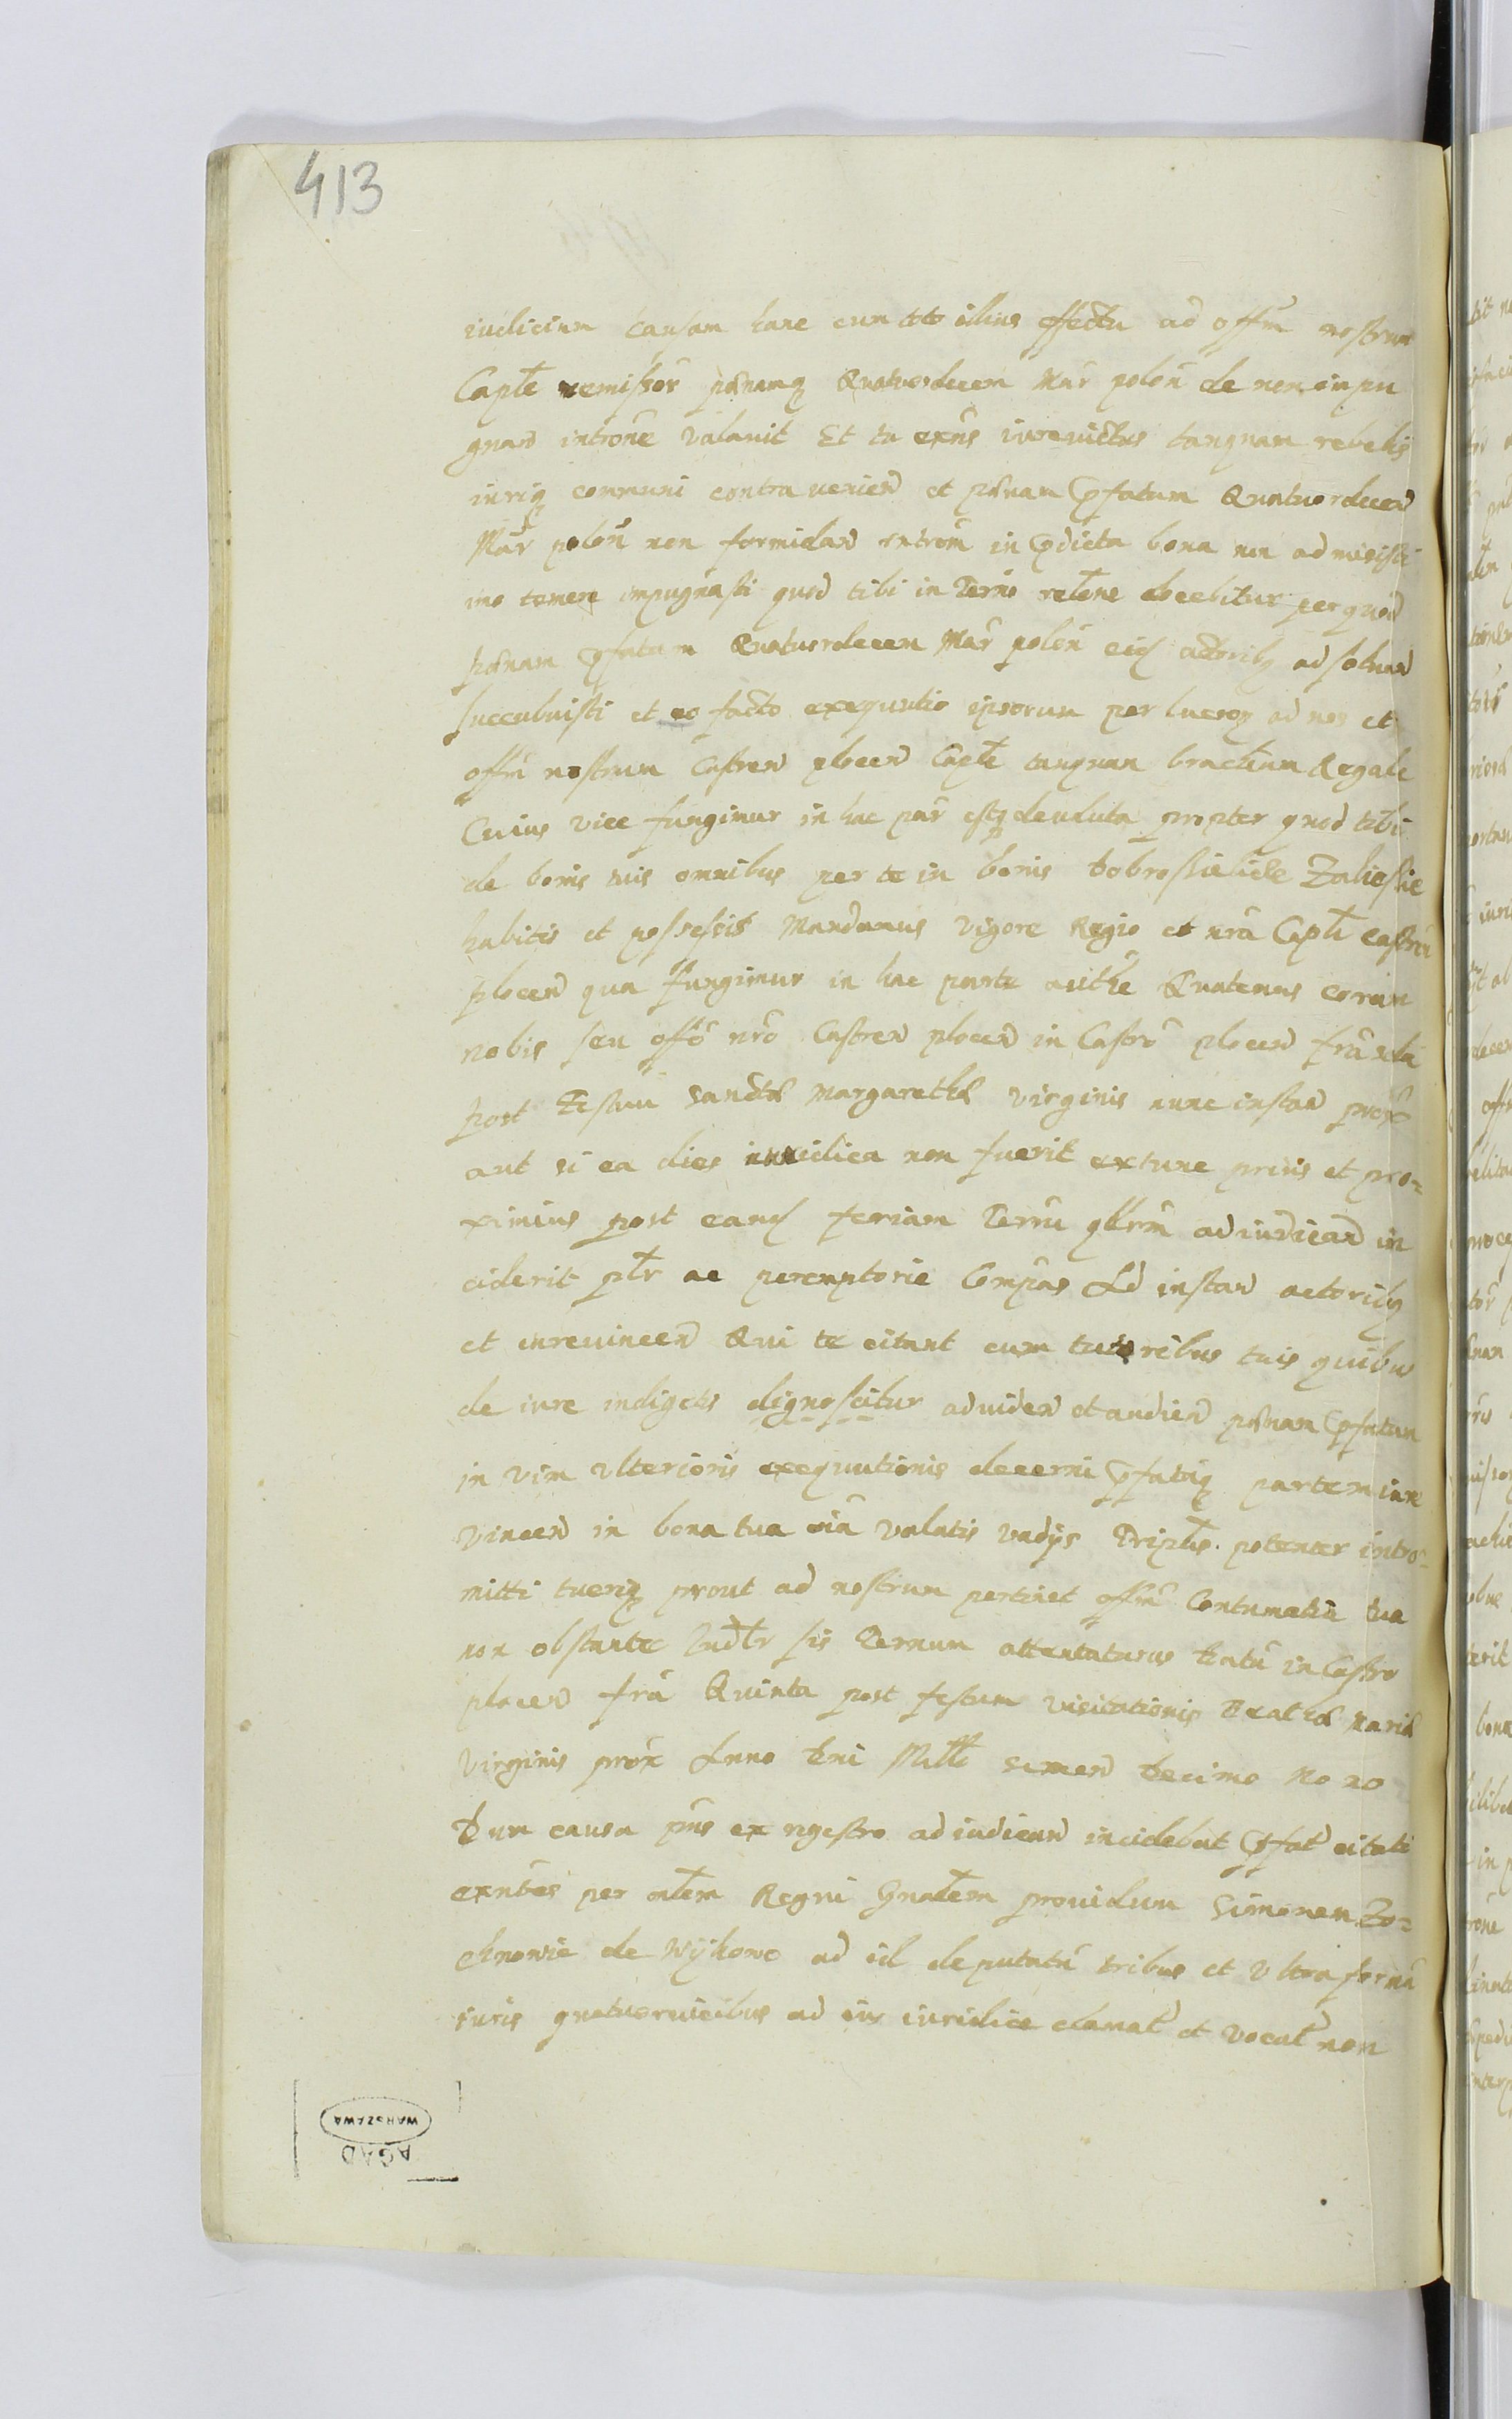 413
iudicium causam hanc cum toto illius effectu ad offm nostrum
Caple remissor pœnamq Quatuordecem Mar polon de non impu
gnand introne valavit Et tu exns iurevictus tanquam rebellis
iuriq communi contra venien et pœnam pfatam Quatuordecem
Mar polon non formidan introm in pdicta bona non admisisti
imo temere impugnasti quod tibi in Terno relone docebitur per quod
pœnam pfatam Quatuordecem Mar polon eisd actoribq ad soluend
succubuisti et eo facto exequutio ipsorum per lucroq ad nos et
offm nostrum Castren plocen Caple tanquam brachium Regale
Cuius vice fungimur in hac par estq devoluta propter quod tibi
de bonis tuis omnibus per te in bonis Dobrosielicze Zalieskie
habitis et possessis Mandamus vigore Regio et nra Capli castren
plocen qua fungimur in hac parte authe Quatenus coram
nobis seu offo nro Castren plocen in Castro plocen fria
post Festum Sanctæ Margarethæ virginis nunc instan prox
aut si ea dies iuridica non fuerit extunc prius et pro=
ximius post eand feriam Termi qllrm adiudican in
ciderit plr ac peremptorie Compas Ad instan actoribq
et inrevincen Qui te citant cum tutoribus tuis quibus
de iure indigetis dignoscitur ad viden et audien pœnam pfatam
in vim ulterioris exequutionis decerni pfatiq partem inre
vincen in bona tua oia valatis vadys Triplis potenter intro=
mitti tueriq prout ad nostrum pertinet offm Contumatia tua
non obstante Iudlr sis Ternum attentaturus Datu in Castro
plocen fria Quinta post festum visitationis Beathæ Mariæ
Virginis prox Anno Dni Mille simen Decimo No no
Dum causa pns ex regestro ad iudican incidebat pfat citati
exntes per mlem Regni Gnalem providum Simonem Zo=
chnowie de Wykowo ad id deputatu tribus et ultra forma
iuris quatuorvicibus ad ius iuridice clamat et vocat non
WARSZAWA
AGAD